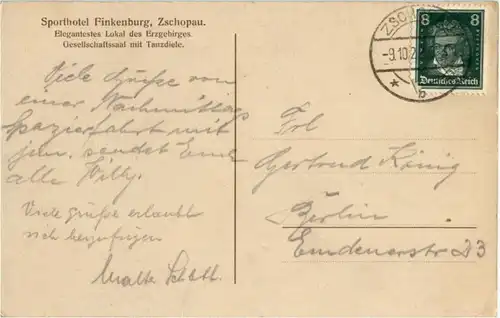 Sporthotel Finkenburg, Zschopau.
Elegantestes Lokal des Erzgebirges.
Gesellschaftssaal mit Tanzdiele.
Viele Grüße von
einer Nachmittags
spazierfahrt mit
sendet Euch
alle Willy.
Viele Grüße erlaubt
sich beizufügen
Malte
ZSCH
-9.10.2
* b
8 8
Deutsches Reich
Frl
Gertrud König
Berlin
Emdenerstr 23